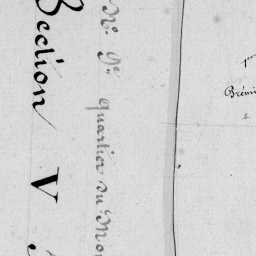 Section V
N°. 9e. quartier du Mo
1er
Brémi